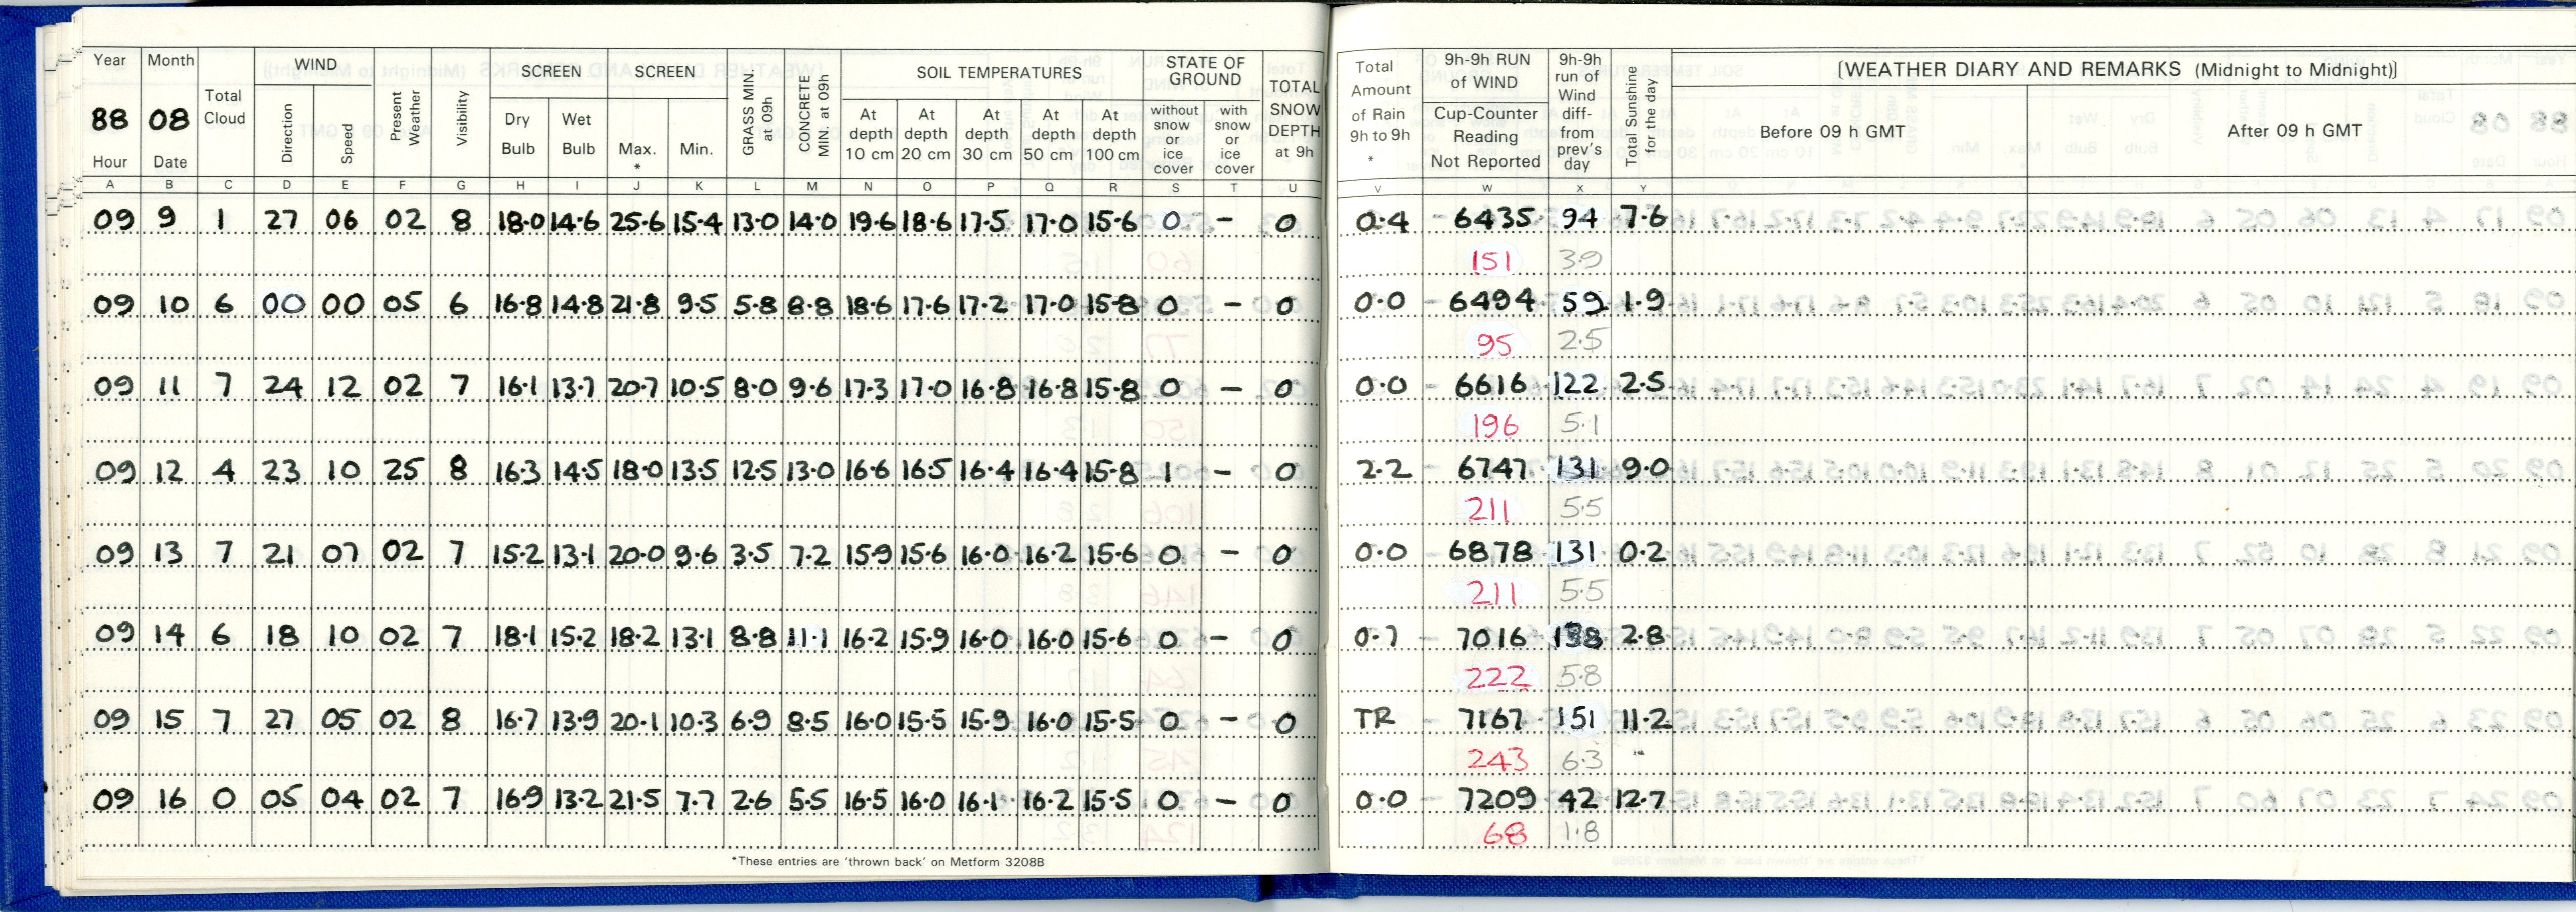 Year Month WIND SCREEN SCREEN SOIL TEMPERATURES STATE OF GROUND
88 08 Total Cloud Direction Speed Present Weather Visibility Dry Bulb Wet Bulb Max. * Min. GRASS MIN. at 09h CONCRETE MIN. at 09h At depth 10 cm At depth 20 cm At depth 30 cm At depth 50 cm At depth 100 cm without snow or ice cover with snow or ice cover TOTAL SNOW DEPTH at 9h
Hour Date
A B C D E F G H I J K L M N O P Q R S T U
09 9 1 27 06 02 8 18.0 14.6 25.6 15.4 13.0 14.0 19.6 18.6 17.5 17.0 15.6 0 - 0
09 10 6 00 00 05 6 16.8 14.8 21.8 9.5 5.8 8.8 18.6 17.6 17.2 17.0 15.8 0 - 0
09 11 7 24 12 02 7 16.1 13.7 20.7 10.5 8.0 9.6 17.3 17.0 16.8 16.8 15.8 0 - 0
09 12 4 23 10 25 8 16.3 14.5 18.0 13.5 12.5 13.0 16.6 16.5 16.4 16.4 15.8 1 - 0
09 13 7 21 07 02 7 15.2 13.1 20.0 9.6 3.5 7.2 15.9 15.6 16.0 16.2 15.6 0 - 0
09 14 6 18 10 02 7 18.1 15.2 18.2 13.1 8.8 11.1 16.2 15.9 16.0 16.0 15.6 0 - 0
09 15 7 27 05 02 8 16.7 13.9 20.1 10.3 6.9 8.5 16.0 15.5 15.9 16.0 15.5 0 - 0
09 16 0 05 04 02 7 16.9 13.2 21.5 7.7 2.6 5.5 16.5 16.0 16.1 16.2 15.5 0 - 0
*These entries are 'thrown back' on Metform 3208B
Total Amount of Rain 9h to 9h * 9h-9h RUN of WIND Cup-Counter Reading Not Reported 9h-9h run of Wind diff- from prev's day Total Sunshine for the day [WEATHER DIARY AND REMARKS (Midnight to Midnight)]
Before 09 h GMT After 09 h GMT
V W X Y
0.4 6435 94 7.6
151 3.9
0.0 6494 59 1.9
95 2.5
0.0 6616 122 2.5
196 5.1
2.2 6747 131 9.0
211 5.5
0.0 6878 131 0.2
211 5.5
0.7 7016 138 2.8
222 5.8
TR 7167 151 11.2
243 6.3
0.0 7209 42 12.7
68 1.8